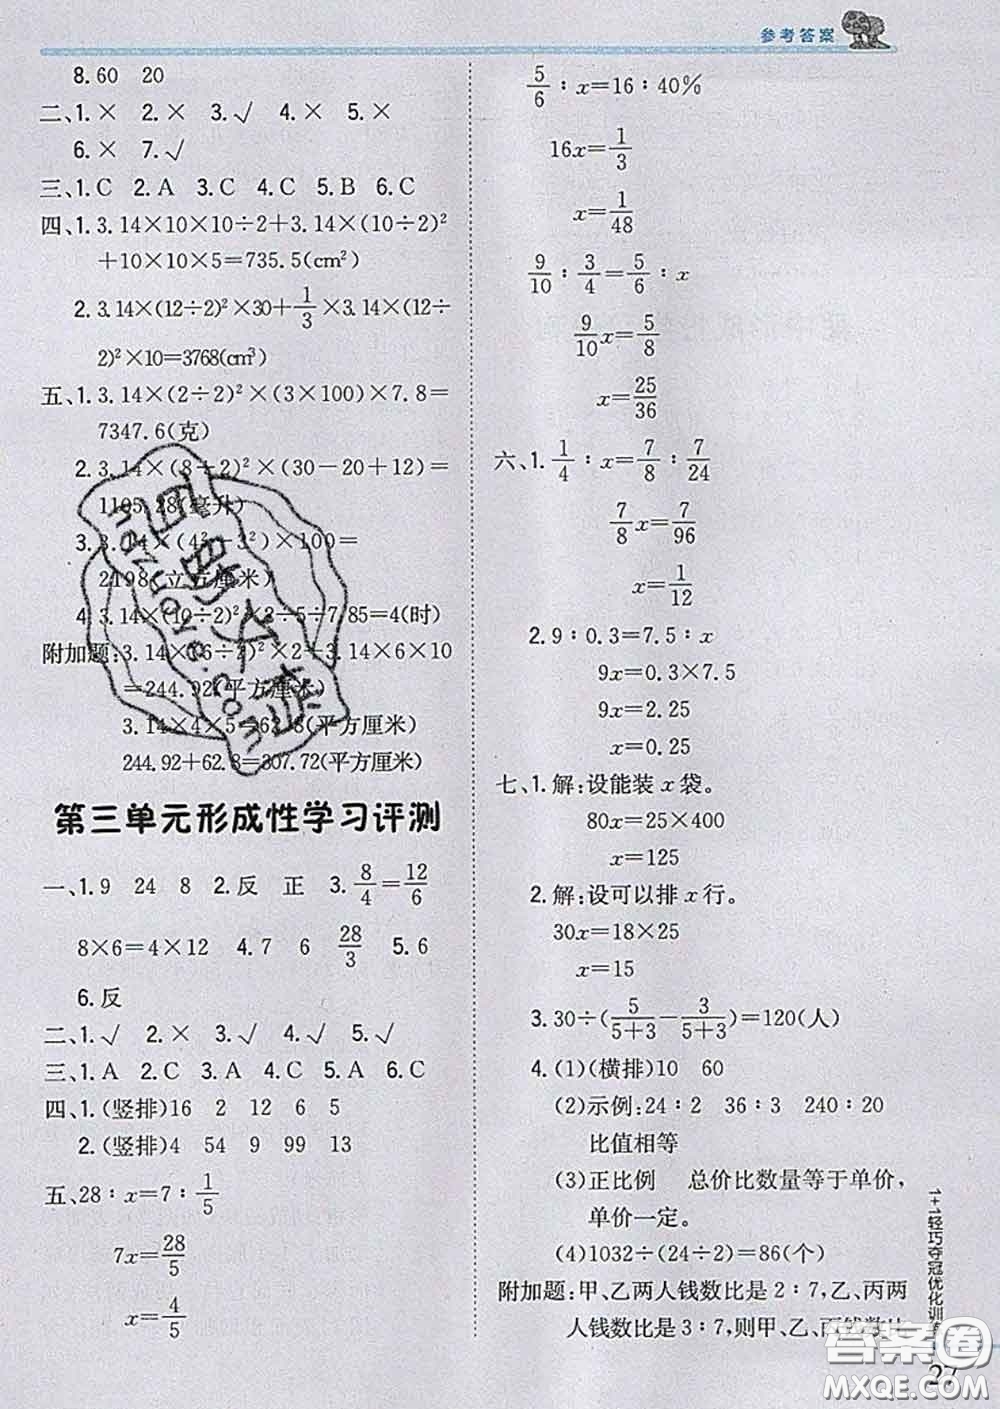 参考答案
8.60 20
二、1.× 2.× 3.√ 4.× 5.×
6.× 7.√
三、1.C 2.A 3.C 4.C 5.B 6.C
四、1.3.14×10×10÷2+3.14×(10÷2)²
+10×10×5=735.5(cm²)
2.3.14×(12÷2)²×30+1/3×3.14×(12÷
2)²×10=3768(cm³)
五、1.3.14×(2÷2)²×(3×100)×7.8=
7347.6(克)
2.3.14×(8÷2)²×(30-20+12)=
1105.28(毫升)
3.3.14×(4²-3²)×100=
2198(立方厘米)
4.3.14×(10÷2)²×2÷5÷7.85=4(时)
附加题:3.14×(6÷2)²×2+3.14×6×10
=244.92(平方厘米)
3.14×4×5=62.8(平方厘米)
244.92+62.8=307.72(平方厘米)
第三单元形成性学习评测
一、1.9 24 8 2.反 正 3.8/4=12/6
8×6=4×12 4.7 6 28/3 5.6
6.反
二、1.√ 2.× 3.√ 4.√ 5.√
三、1.A 2.C 3.A 4.C 5.A 6.C
四、1.(竖排)16 2 12 6 5
2.(竖排)4 54 9 99 13
五、28∶x=7∶1/5
7x=28/5
x=4/5
5/6∶x=16∶40%
16x=1/3
x=1/48
9/10∶3/4=5/6∶x
9/10x=5/8
x=25/36
六、1.1/4∶x=7/8∶7/24
7/8x=7/96
x=1/12
2.9∶0.3=7.5∶x
9x=0.3×7.5
9x=2.25
x=0.25
七、1.解:设能装x袋。
80x=25×400
x=125
2.解:设可以排x行。
30x=18×25
x=15
3.30÷(5/5+3-3/5+3)=120(人)
4.(1)(横排)10 60
(2)示例:24∶2 36∶3 240∶20
比值相等
(3)正比例 总价比数量等于单价,
单价一定。
(4)1032÷(24÷2)=86(个)
附加题:甲、乙两人钱数比是2∶7,乙、丙两
人钱数比是3∶7,则甲、乙、丙钱数比
1+1轻巧夺冠优化训
27
答案圈
MXQE.COM